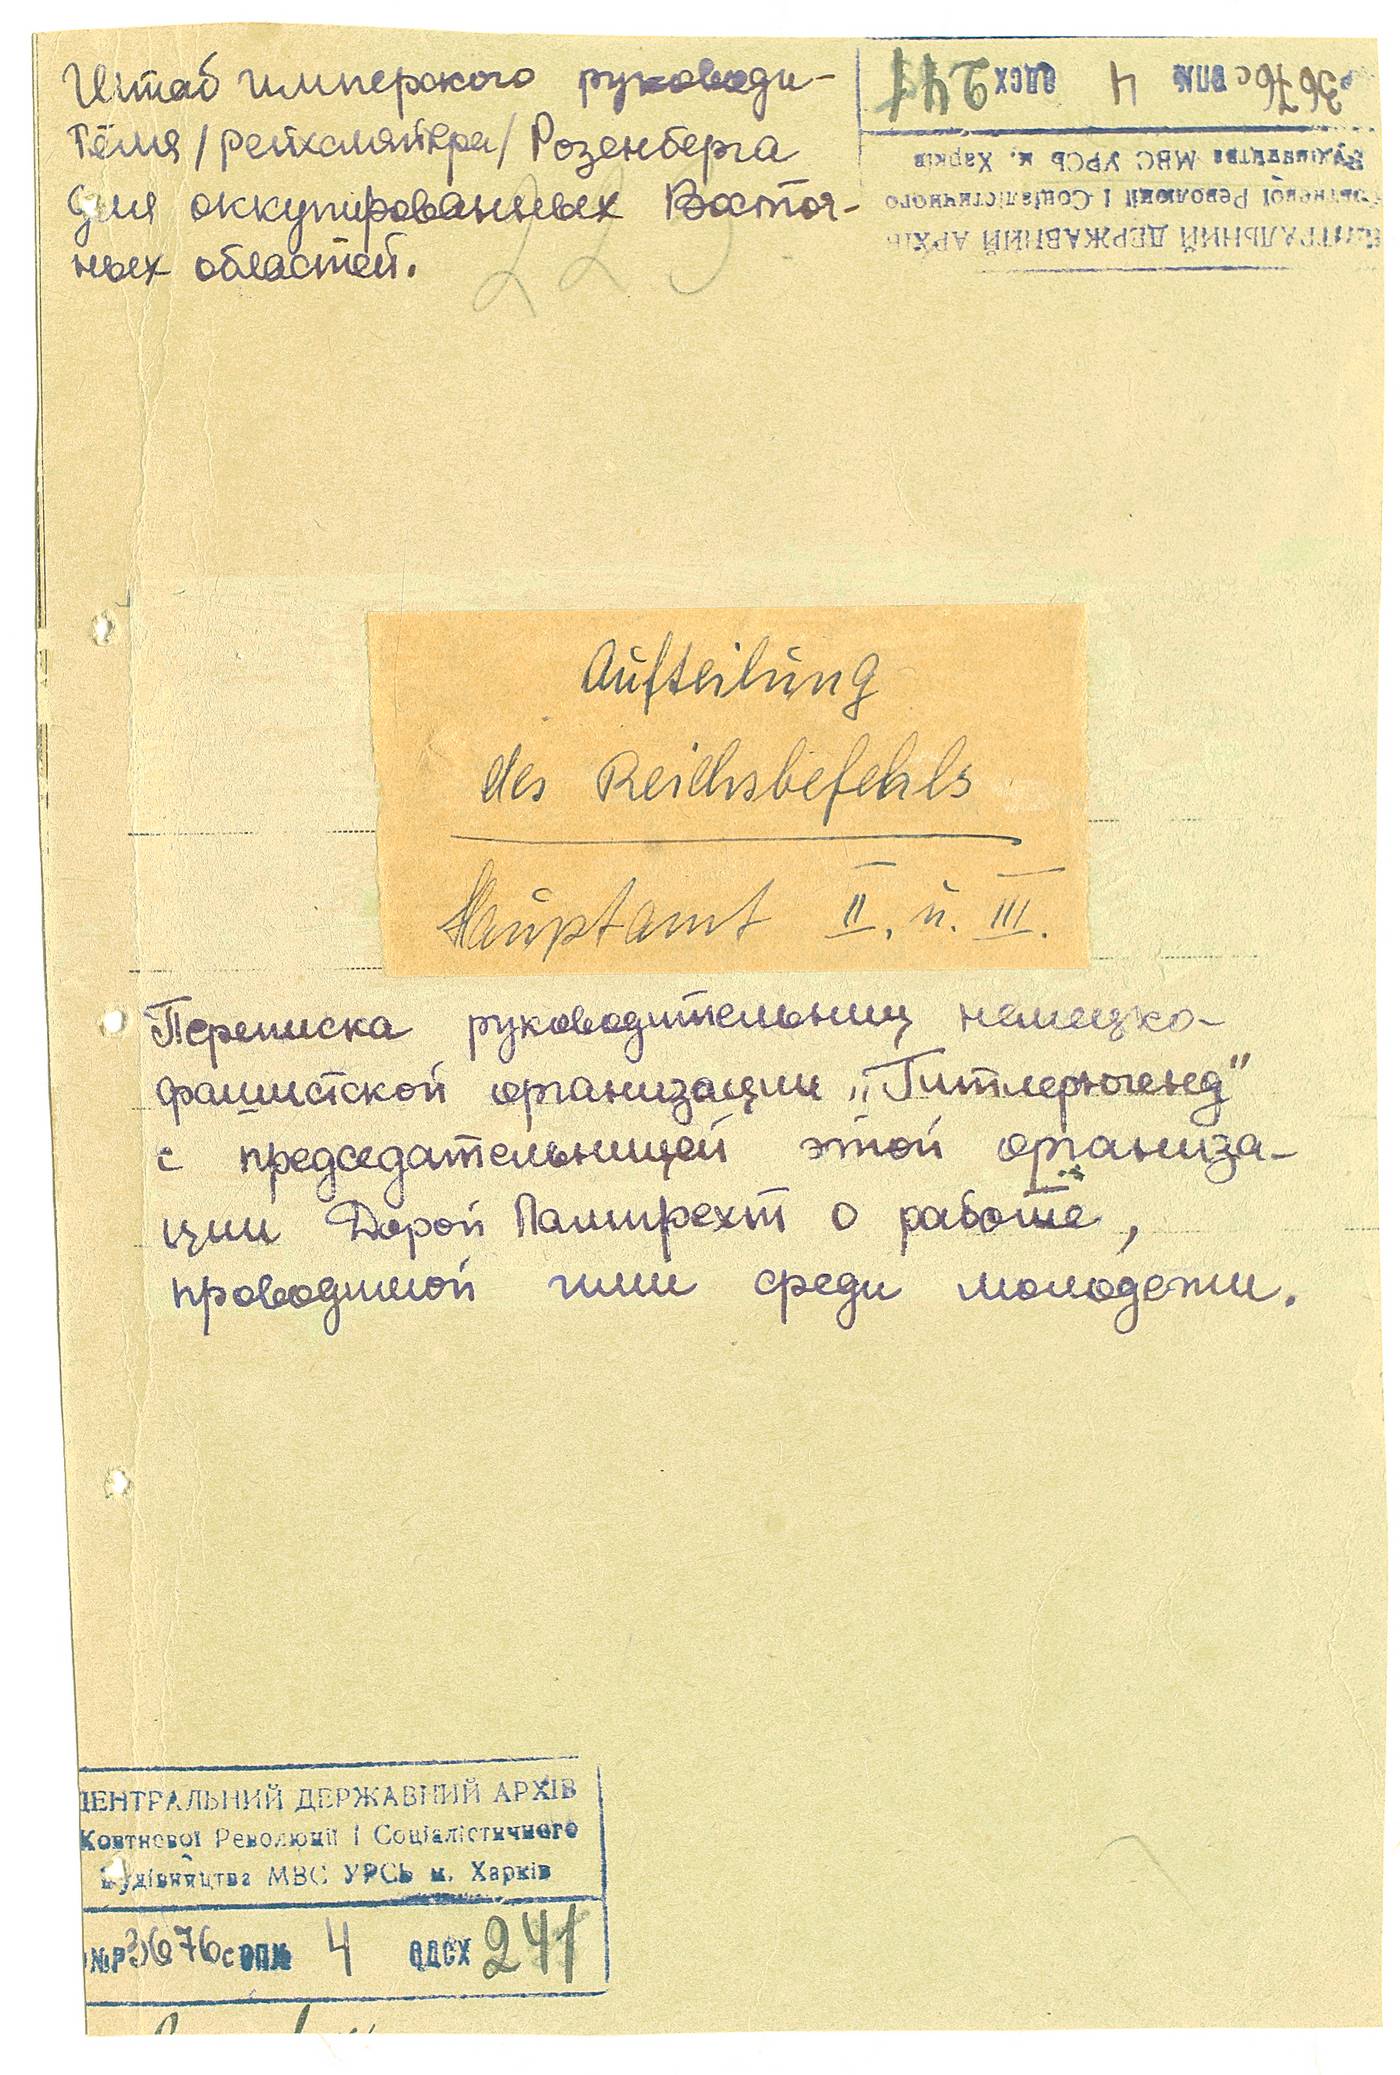 Штаб имперского руководи-
теля /рейхсляйтера/ Розенберга
для оккупированных Восточ-
ных областей.
№Р 3676с ОП№ 4 ОДСХ 241
ЦЕНТРАЛЬНИЙ ДЕРЖАВНИЙ АРХІВ
Жовтневої Революції і Соціалістичного
Будівництва МВС УРСР м. Харків
Aufteilung
des Reichsbefehls
Hauptamt II. u. III.
Переписка руководительниц немецко-
фашистской организации „Гитлерюгенд"
с председательницей этой организа-
ции Дорой Паширехт о работе,
проводимой ими среди молодежи.
ЦЕНТРАЛЬНИЙ ДЕРЖАВНИЙ АРХІВ
Жовтневої Революції і Соціалістичного
Будівництва МВС УРСР м. Харків
№Р 3676с ОП№ 4 ОДСХ 241